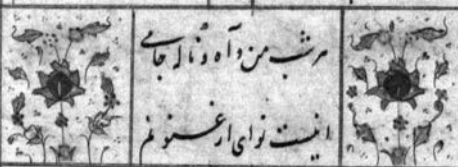 هر شب من و آه و ناله جامی
اینست نوای ارغنونم